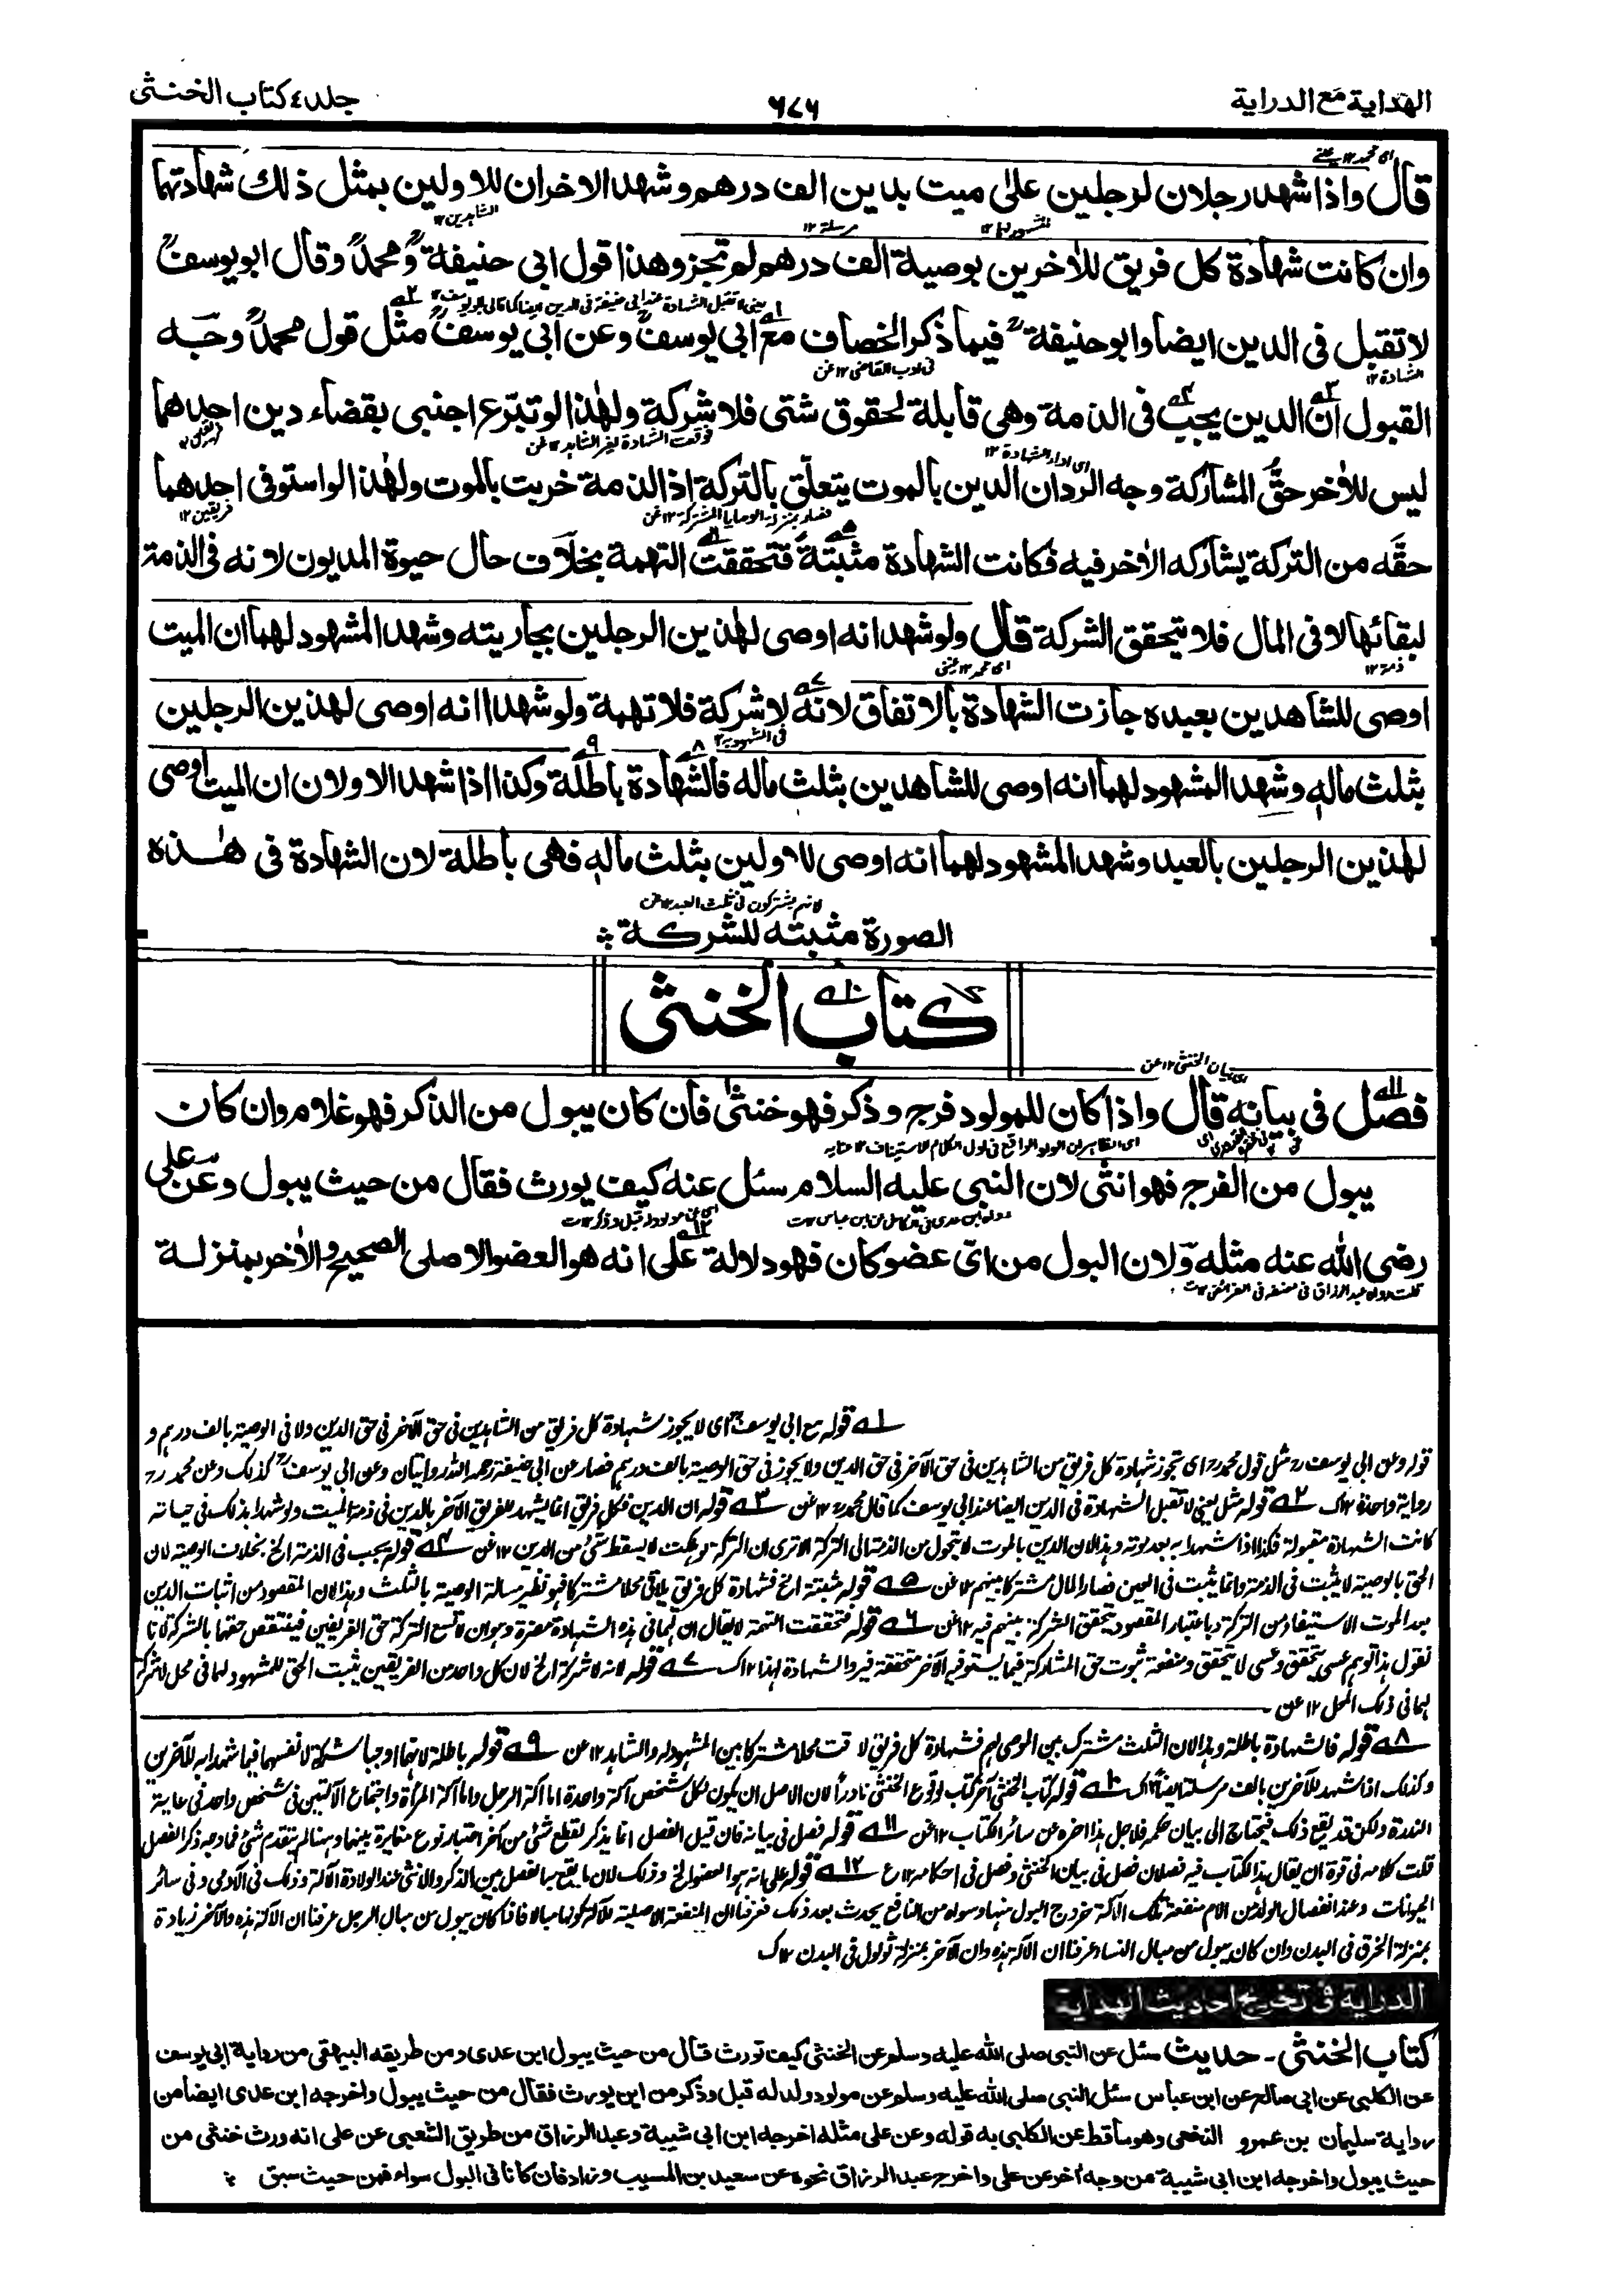 الهداية مع الدراية
٦٨٦
جلد ٤ كتاب الخنثى
قال واذا شهد رجلان لرجلين على ميت بدين الف درهم وشهد الاخران للاولين بمثل ذلك شهادتهما
وان كانت شهادة كل فريق للاٰخرين بوصية الف درهم لم تجز وهذا قول ابى حنيفة ومحمد وقال ابو يوسف
لا تقبل فى الدين ايضا وابو حنيفة فيما ذكر الخصاف مع ابى يوسف وعن ابى يوسف مثل قول محمد وجه
القبول ان الدين يجب فى الذمة وهى قابلة لحقوق شتى فلا شركة ولهٰذا لو تبرع اجنبى بقضاء دين احدهما
ليس للاٰخر حق المشاركة وجه الرد ان الدين بالموت يتعلق بالتركة اذ الذمة خربت بالموت ولهٰذا لو استوفى احدهما
حقه من التركة يشاركه الاٰخر فيه فكانت الشهادة مثبتة فتحققت التهمة بخلاف حال حيوة المديون لانه فى الذمة
لبقائها لا فى المال فلا تتحقق الشركة قال ولو شهدا نه اوصى لهذين الرجلين بجاريته وشهد المشهود لهما ان الميت
اوصى للشاهدين بعبده جازت الشهادة بالاتفاق لانه لا شركة فلا تهمة ولو شهدا انه اوصى لهذين الرجلين
بثلث ماله وشهد المشهود لهما انه اوصى للشاهدين بثلث ماله فالشهادة باطلة وكذا اذا شهد الاولان ان الميت اوصى
لهذين الرجلين بالعبد وشهد المشهود لهما انه اوصى للاولين بثلث ماله فهى باطلة لان الشهادة فى هٰذه
لانهم يشتركون فى ثلث العبد ١٢ عن
الصورة مثبته للشركة
كتاب الخنثى
اى بيان الخنثى ١٢ عن
فصل فى بيانه قال واذا كان للمولود فرج وذكر فهو خنثى فان كان يبول من الذكر فهو غلام وان كان
يبول من الفرج فهو انثى لان النبى عليه السلام سئل عنه كيف يورث فقال من حيث يبول وعن على
رضى الله عنه مثله ولان البول من اى عضو كان فهو دلالة على انه هو العضو الاصلى الصحيح والاٰخر بمنزلة
١ قوله مع ابى يوسف اى لا يجوز شهادة كل فريق من الشاهدين فى حق الآخر فى حق الدين ولا فى الوصية بالف درهم و
قوله وعن ابى يوسف مثل قول محمد اى تجوز شهادة كل فريق من الشاهدين فى حق الآخر فى حق الدين ولا يجوز فى حق الوصية بالف درهم فصار عن ابى حنيفة رحمه الله روايتان وعن ابى يوسف كذلك وعن محمد
رواية واحدة ١٢ ك ٢ قوله مثل يعنى لا تقبل الشهادة فى الدين ايضا عند ابى يوسف كما قال محمد ١٢ عن ٣ قوله ان الدين فكل فريق انما يشهد للفريق الآخر بالدين فى ذمة الميت ولو شهدا بذلك فى حياته
كانت الشهادة مقبولة فكذا اذا شهدا به بعد موته وهذا لان الدين بالموت لا يتحول من الذمة الى التركة الا ترى ان التركة لو هلكت لا يسقط شئ من الدين ١٢ عن ٤ قوله يجب فى الذمة الخ بخلاف الوصية لان
الحق بالوصية لا يثبت فى الذمة وانما يثبت فى العين فصار المال مشتركا بينهم ١٢ عن ٥ قوله مثبتة الخ فشهادة كل فريق يلاقى محلا مشتركا فهو نظير مسألة الوصية بالثلث وهذا لان المقصود من اثبات الدين
بعد الموت الاستيفاء من التركة وباعتبار المقصود يتحقق الشركة بينهم فيه ١٢ عن ٦ قوله فتحققت التهمة لا يقال ان لهما فى هذه الشهادة مضرة وهو ان لا تسع التركة حق الفريقين فينتقص حقهما بالشركة لانا
نقول هذا توهم عسى يتحقق وعسى لا يتحقق ومنفعة ثبوت حق المشاركة فيما يستوفيه الآخر متحققة فيرد الشهادة لهذا ١٢ ك ٧ قوله لانه لا شركة الخ لان كل واحد من الفريقين يثبت الحق للمشهود لهما فى محل لا شركة
لهما فى ذلك المحل ١٢ عن
٨ قوله فالشهادة باطلة وهذا لان الثلث مشترك بين الموصى لهم فشهادة كل فريق لاقت محلا مشتركا بين المشهود له والشاهد ١٢ عن ٩ قوله باطلة لانهما اوجبا شركة لانفسهما فيما شهدا به للآخرين
وكذلك اذا شهد للآخرين بالف مرسلة ايضا ١٢ ك ١٠ قوله كتاب الخنثى آخر كتاب لوقوع الخنثى نادرا لان الاصل ان يكون لكل شخص آلة واحدة اما آلة الرجل واما آلة المرأة واجتماع الآلتين فى شخص واحد فى غاية
الندرة ولكن قد يقع ذلك فيحتاج الى بيان حكمه فلاجل هذا اخره عن سائر الكتاب ١٢ عن ١١ قوله فصل فى بيانه فان قيل الفصل انما يذكر لقطع شئ من آخر اعتبار نوع مغايرة بينهما وههنا لم يتقدم شئ فما وجه ذكر الفصل
قلت كلامه فى قوة ان يقال هذا الكتاب فيه فصلان فصل فى بيان الخنثى وفصل فى احكامه ١٢ ع ١٢ قوله على انه هو العضو الخ وذلك لان ما يقع به الفصل بين الذكر والانثى عند الولادة الآلة وذلك فى الآدمى وفى سائر
الحيوانات وعند انفصال الولد من الام منفعة تلك الآلة خروج البول منها وسواه من المنافع يحدث بعد ذلك فعرفنا ان المنفعة الاصلية للآلة كونها مبالا فاذا كان يبول من مبال الرجل عرفنا ان الآلة هذه والآخر زيادة
بمنزلة الخرق فى البدن وان كان يبول من مبال النساء عرفنا ان الآلة هذه وان الآخر بمنزلة ثولول فى البدن ١٢ ك
الدراية فى تخريج احاديث الهداية
كتاب الخنثى - حديث سئل عن النبى صلى الله عليه وسلم عن الخنثى كيف تورث قال من حيث يبول ابن عدى ومن طريقه البيهقى من رواية ابى يوسف
عن الكلبى عن ابى صالح عن ابن عباس سئل النبى صلى الله عليه وسلم عن مولود ولد له قبل وذكر من اين يورث فقال من حيث يبول واخرجه ابن عدى ايضا من
رواية سليمان بن عمرو النخعى وهو ساقط عن الكلبى به قوله وعن على مثله اخرجه ابن ابى شيبة وعبد الرزاق من طريق الشعبى عن على انه ورث خنثى من
حيث يبول واخرجه ابن ابى شيبة من وجه آخر عن على واخرج عبد الرزاق نحوه عن سعيد بن المسيب وزاد فان كانا فى البول سواء فمن حيث سبق